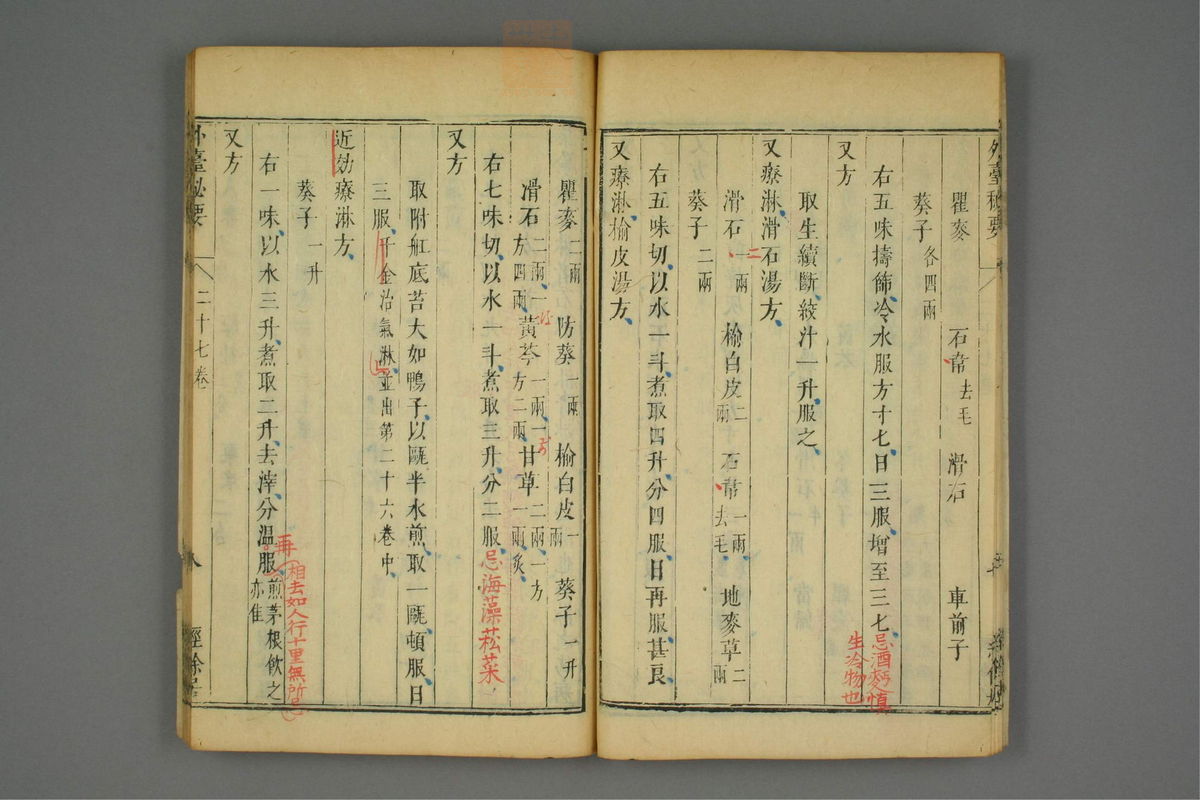 外臺秘要
瞿麥 石韋去毛 滑石 車前子
葵子各四兩
右五味擣篩冷水服方寸七日三服增至三七忌酒麪慎生冷物也
又方
取生續斷絞汁一升服之
又療淋滑石湯方
滑石二兩 榆白皮二兩 石韋一兩去毛 地麥草二兩
葵子二兩
右五味切以水一斗煮取四升分四服日再服甚良
又療淋榆皮湯方
瞿麥二兩 防葵一兩 榆白皮一兩 葵子一升
滑石二兩一方四兩 黃芩一兩一方二兩 甘草二兩一方一兩炙
右七味切以水一斗煮取三升分二服忌海藻菘菜
又方
取附舡底苔大如鴨子以甌半水煎取一甌頓服日
三服千金治氣淋並出第二十六卷中
近効療淋方
葵子一升
右一味以水三升煮取二升去滓分温再服相去如人行十里無所忌煎茅根飲之亦佳
又方
外臺秘要 二十七卷 經餘居